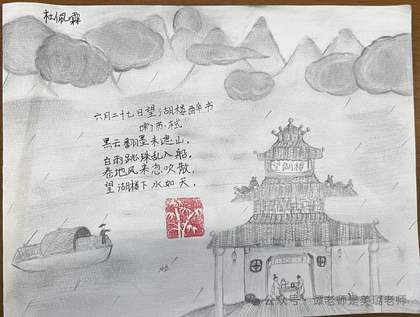 杜佩霖
六月二十七日望湖楼醉书
宋 苏轼
黑云翻墨未遮山，
白雨跳珠乱入船，
卷地风来忽吹散，
望湖楼下水如天。
楼湖望
公众号：谭老师是美瑶老师